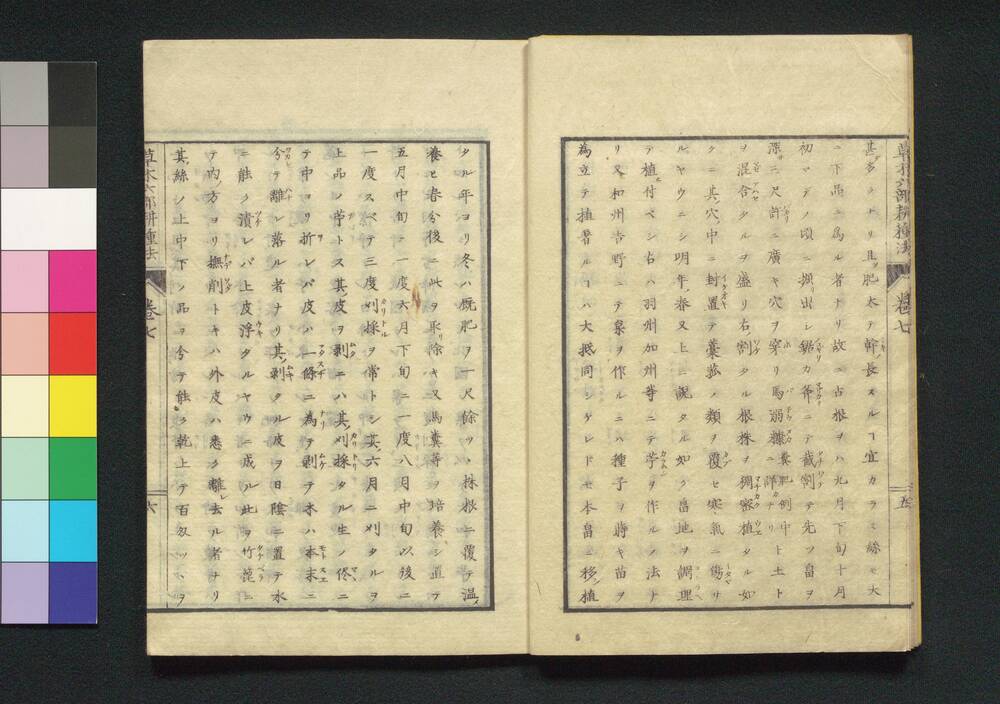 甚タ多シトリ且ツ肥太テ幹長スルコ宜カラズ絲モ大
ニ下品ト為ル者ナリ故ニ古根ヲハ九月下旬十月
初マデノ頃ニ掘リ出シ鋸カ斧ニテ截割テ先ツ畠ヲ
深二尺許ニ廣キ穴ヲ穿リ馬溺糠糞肥ト土ト
ヲ混合タルヲ盛リ右ノ割タル根株ヲ稠密植タル如
クニ其穴ノ中ニ封置テ藁菰ノ類ヲ覆ヒ寒氣ニ傷サ
ルヤウニシ明年ノ春又上ニ説タル如ク畠地ヲ調理
テ植付ベシ右ハ羽州加州等ニテ苧ヲ作ルノ法ナ
リ又和州吉野ニテ枲ヲ作ルニハ種子ヲ蒔キ苗ヲ
為立テ植ルコハ大抵同シケレドモ本畠ニ移シ植
草木六部耕種法
卷七
五
タル年ヨリ冬ハ厩肥ヲ一尺餘ツヽ株根ニ覆テ温メ
養ヒ春分後ニ此ヲ取リ除キ又馬糞等ヲ培養シ置テ
五月中旬ニ一度六月下旬ニ一度八月中旬以後ニ
一度スベテ三度刈採ヲ常トシ其六月ニ刈タルヲ
上品ノ苧トス其皮ヲ剥ニハ其刈採タル生ノ侭ニ
テ中ヨリ折レバ皮ハ一條ニ為ヲ剥テ本ハ本末ニ
分テ離レ落ル者ナリ其剥タル皮ヲ日陰ニ置テ水
ニ能ク漬レバ上皮浮タルヤウニ成ル此ヲ竹篦ニ
テ内ノ方ヨリ撫削トキハ外皮ハ悉ク離レ去ル者ナリ
其絲ノ上中下ノ品ヲ分テ能ク乾上テ百匁ツヽヲ
草木六部耕種法
卷七
六